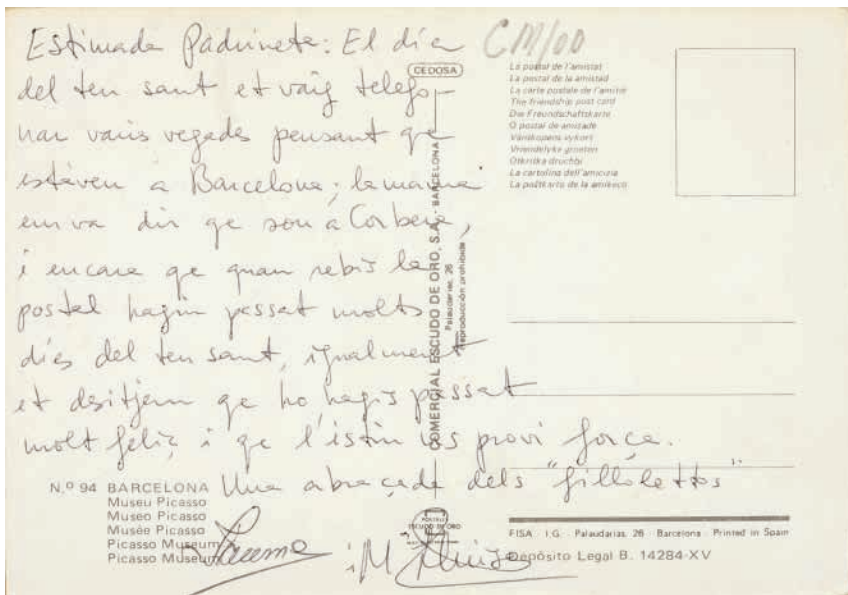 Estimada Padrineta: El dia
del teu sant et vaig telefo-
nar varis vegades pensant qe
estàveu a Barcelona; la mama
em va dir qe sou a Corbera,
i encara qe quan rebis la
postal hagin passat molts
dies del teu sant, igualment
et desitjem qe ho hagis passat
molt feliç i qe l'istiu us provi força.
Una abraçada dels "fillolettos"
i M. Lluïsa
CM/00
CEDOSA
La postal de l'amistat
La postal de la amistad
La carte postale de l'amitié
The friendship post card
Die Freundschaftskarte
O postal de amizade
Vänskapens vykort
Vriendelyke groeten
Otkritka druchbi
La cartolina dell'amicizia
La poŝtkarto de la amikeco
COMERCIAL ESCUDO DE ORO, S.A. - BARCELONA
Palaudarias, 26
Reproducción prohibida
N.º 94 BARCELONA
Museu Picasso
Museo Picasso
Musée Picasso
Picasso Museum
Picasso Museum
POSTALES
ESCUDO DE ORO
FISA - I.G. - Palaudarias, 26 - Barcelona - Printed in Spain
Depósito Legal B. 14284-XV